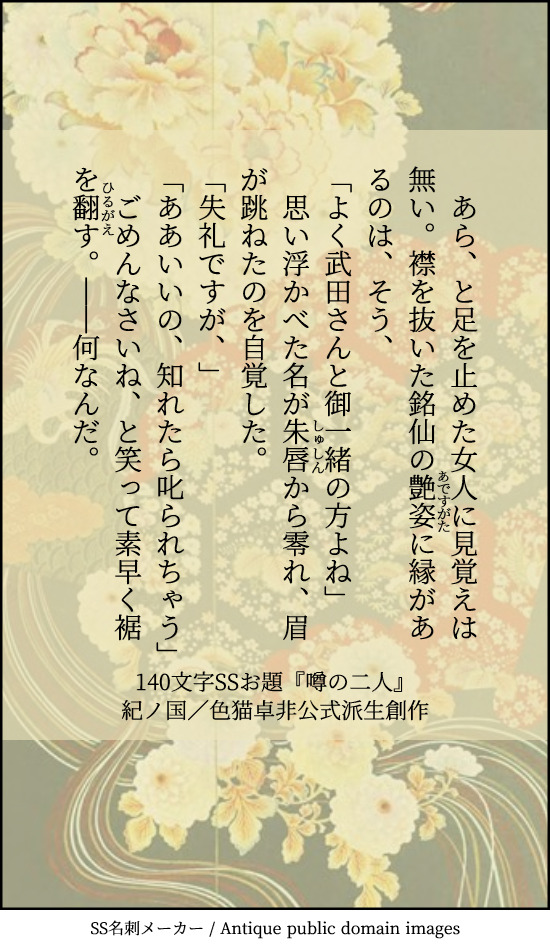 あら、と足を止めた女人に見覚えは
無い。襟を抜いた銘仙の艶姿に縁があ
るのは、そう、
「よく武田さんと御一緒の方よね」
思い浮かべた名が朱唇から零れ、眉
が跳ねたのを自覚した。
「失礼ですが、」
「ああいいの、知れたら叱られちゃう」
ごめんなさいね、と笑って素早く裾
を翻す。――何なんだ。
あですがた
しゅしん
ひるがえ
140文字SSお題『噂の二人』
紀ノ国／色猫卓非公式派生創作
SS名刺メーカー / Antique public domain images